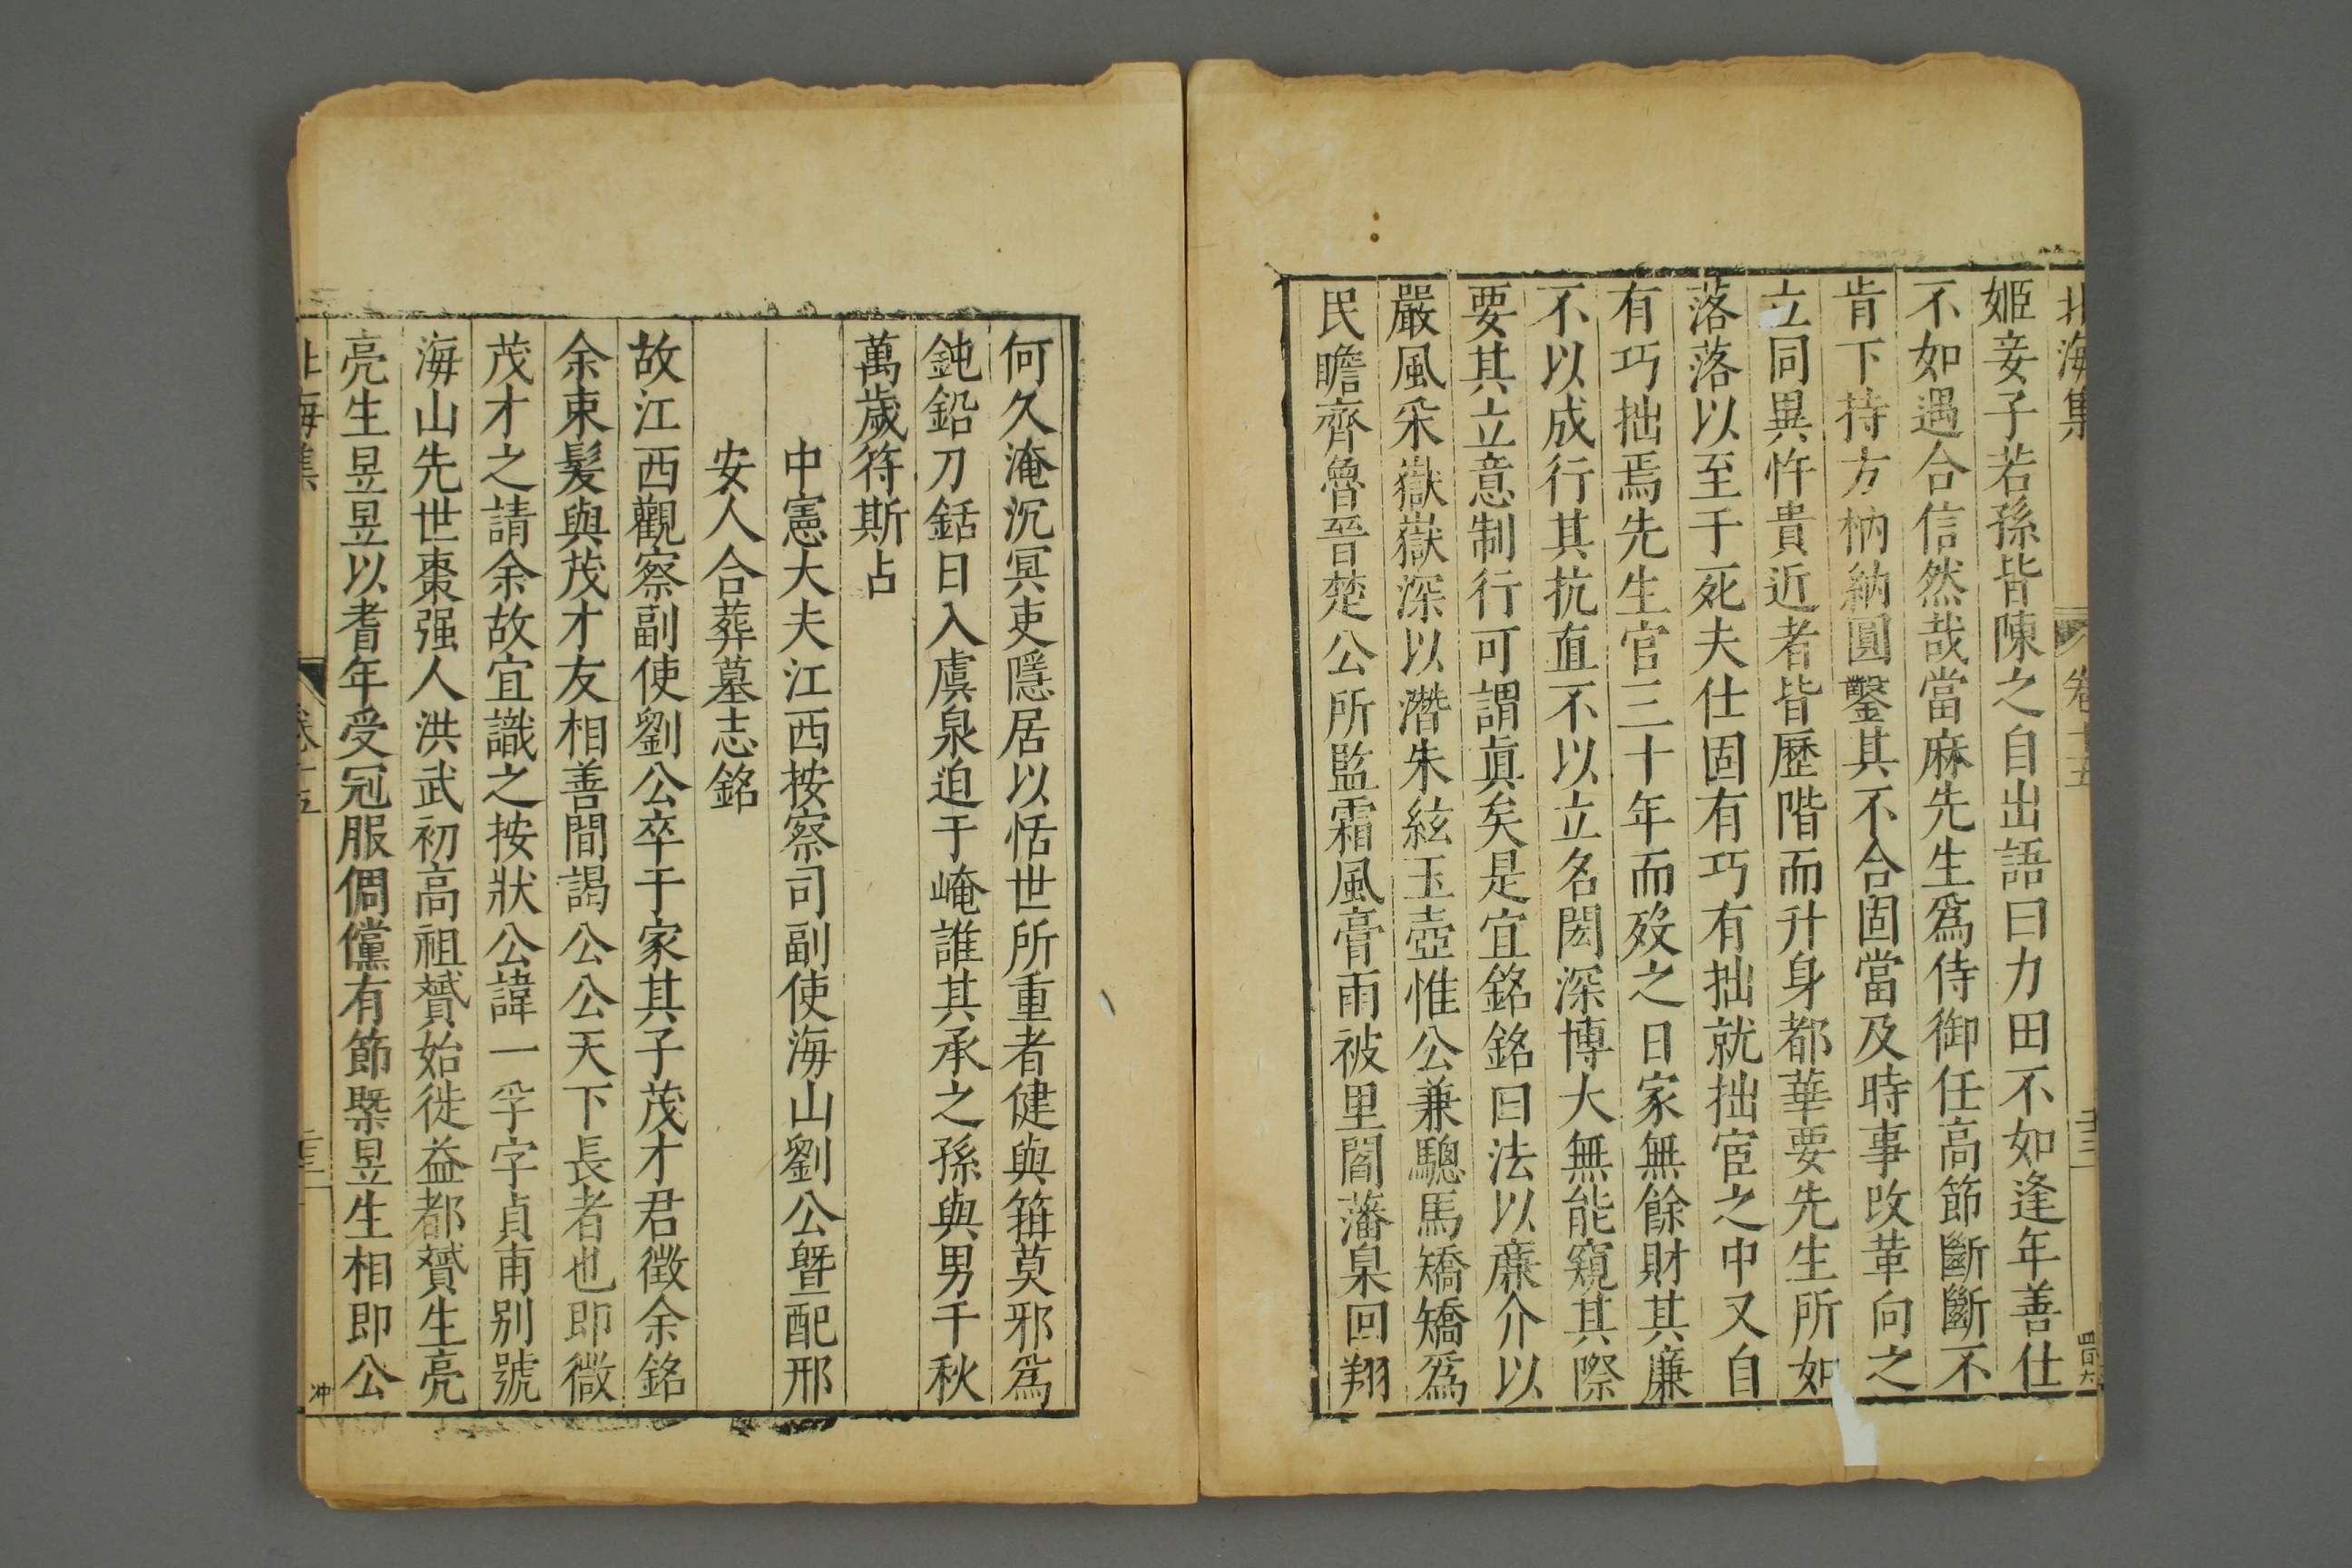 北海集 卷十五
姬妾子若孫皆陳之自出語曰力田不如逢年善仕
不如遇合信然哉當麻先生爲侍御任高節斷斷不
肯下持方枘納圓鑿其不合固當及時事改革向之
立同異忤貴近者皆歷階而升身都華要先生所如
落落以至于死夫仕固有巧有拙就拙宦之中又自
有巧拙焉先生官三十年而歿之日家無餘財其廉
不以成行其抗直不以立名閎深博大無能窺其際
要其立意制行可謂眞矣是宜銘銘曰法以廉介以
嚴風采嶽嶽深以潛朱絃玉壺惟公兼驄馬矯矯爲
民瞻齊魯晉楚公所監霜風膏雨被里閻藩臬回翔
何久淹沉冥吏隱居以恬世所重者健與箝莫邪爲
鈍鉛刀銛日入虞泉迫于崦誰其承之孫與男千秋
萬歲符斯占
中憲大夫江西按察司副使海山劉公曁配邢
安人合葬墓志銘
故江西觀察副使劉公卒于家其子茂才君徵余銘
余束髮與茂才友相善間謁公公天下長者也即微
茂才之請余故宜識之按狀公諱一孚字貞甫別號
海山先世棗强人洪武初高祖贇始徙益都贇生亮
亮生昱昱以耆年受冠服倜儻有節槩昱生相即公
北海集 卷十五
冲